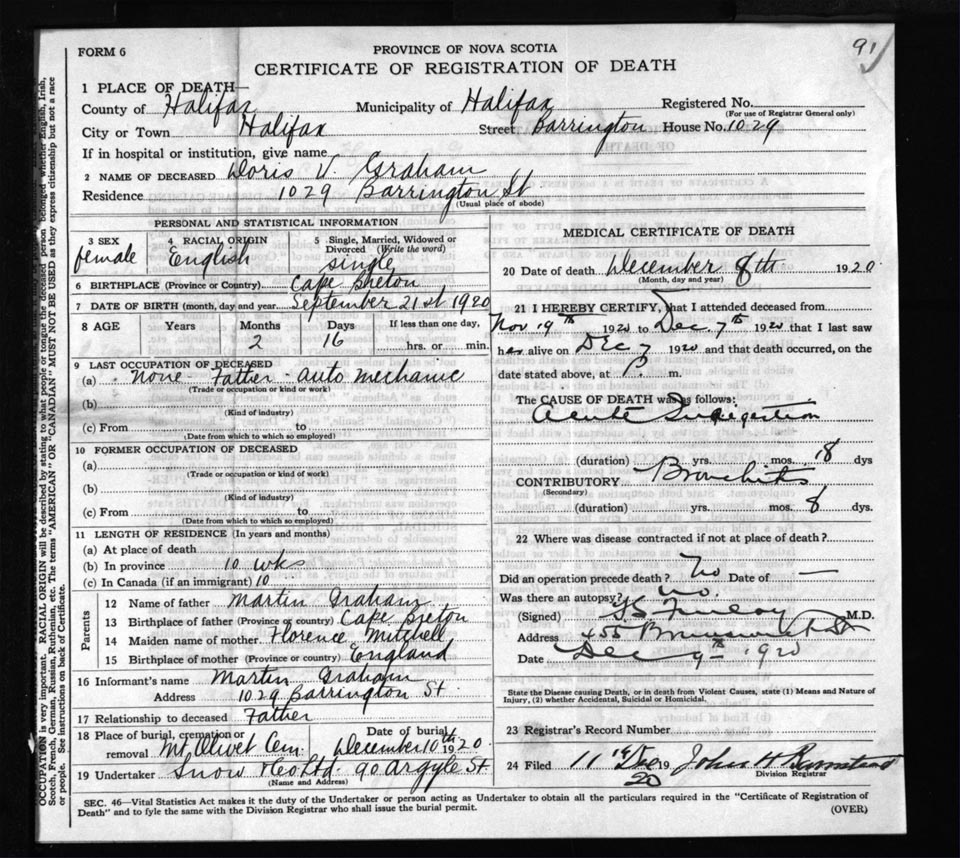 91
FORM 6
PROVINCE OF NOVA SCOTIA
CERTIFICATE OF REGISTRATION OF DEATH
1 PLACE OF DEATH—
County of Halifax Municipality of Halifax Registered No.
(For use of Registrar General only)
City or Town Halifax Street Barrington House No. 1029
If in hospital or institution, give name
2 NAME OF DECEASED Doris V. Graham
Residence 1029 Barrington St
(Usual place of abode)
PERSONAL AND STATISTICAL INFORMATION
3 SEX female
4 RACIAL ORIGIN English
5 Single, Married, Widowed or Divorced (Write the word) single
6 BIRTHPLACE (Province or Country) Cape Breton
7 DATE OF BIRTH (month, day and year) September 21st 1920
8 AGE Years Months Days If less than one day,
2 16 hrs. or min.
9 LAST OCCUPATION OF DECEASED
(a) None Father - auto mechanic
(Trade or occupation or kind of work)
(b)
(Kind of industry)
(c) From to
(Date from which to which so employed)
10 FORMER OCCUPATION OF DECEASED
(a)
(Trade or occupation or kind of work)
(b)
(Kind of industry)
(c) From to
(Date from which to which so employed)
11 LENGTH OF RESIDENCE (In years and months)
(a) At place of death
(b) In province 10 wks
(c) In Canada (if an immigrant) 10
Parents
12 Name of father Martin Graham
13 Birthplace of father (Province or country) Cape Breton
14 Maiden name of mother Florence Mitchell
15 Birthplace of mother (Province or country) England
16 Informant's name Martin Graham
Address 1029 Barrington St
17 Relationship to deceased Father
18 Place of burial, cremation or removal Mt. Olivet Cem. Date of burial December 10th 1920
19 Undertaker Snow & Co Ltd. 90 Argyle St
(Name and Address)
MEDICAL CERTIFICATE OF DEATH
20 Date of death December 8th 1920
(Month, day and year)
21 I HEREBY CERTIFY, that I attended deceased from
Nov 19th 1920 to Dec. 7th 1920 that I last saw
her alive on Dec 7 1920 and that death occurred, on the
date stated above, at P. m.
The CAUSE OF DEATH was as follows:
Acute Indigestion
(duration) yrs. mos. 18 dys
CONTRIBUTORY Bronchitis
(Secondary)
(duration) yrs. mos. 8 dys.
22 Where was disease contracted if not at place of death?
Did an operation precede death? No Date of —
Was there an autopsy? No.
(Signed) M.D.
Address 455 Brunswick St
Date Dec 9th 1920
State the Disease causing Death, or in death from Violent Causes, state (1) Means and Nature of
Injury, (2) whether Accidental, Suicidal or Homicidal.
23 Registrar's Record Number
24 Filed 11 Dec 1920 John H Barnstead
Division Registrar
SEC. 46—Vital Statistics Act makes it the duty of the Undertaker or person acting as Undertaker to obtain all the particulars required in the "Certificate of Registration of
Death" and to fyle the same with the Division Registrar who shall issue the burial permit.
(OVER)
OCCUPATION is very important. RACIAL ORIGIN will be described by stating to what people or tongue the deceased person belonged, whether English, Irish,
Scotch, French, German, Russian, Ruthenian, etc. The terms "AMERICAN" OR "CANADIAN" MUST NOT BE USED as they express citizenship but not a race
or people. See instructions on back of Certificate.